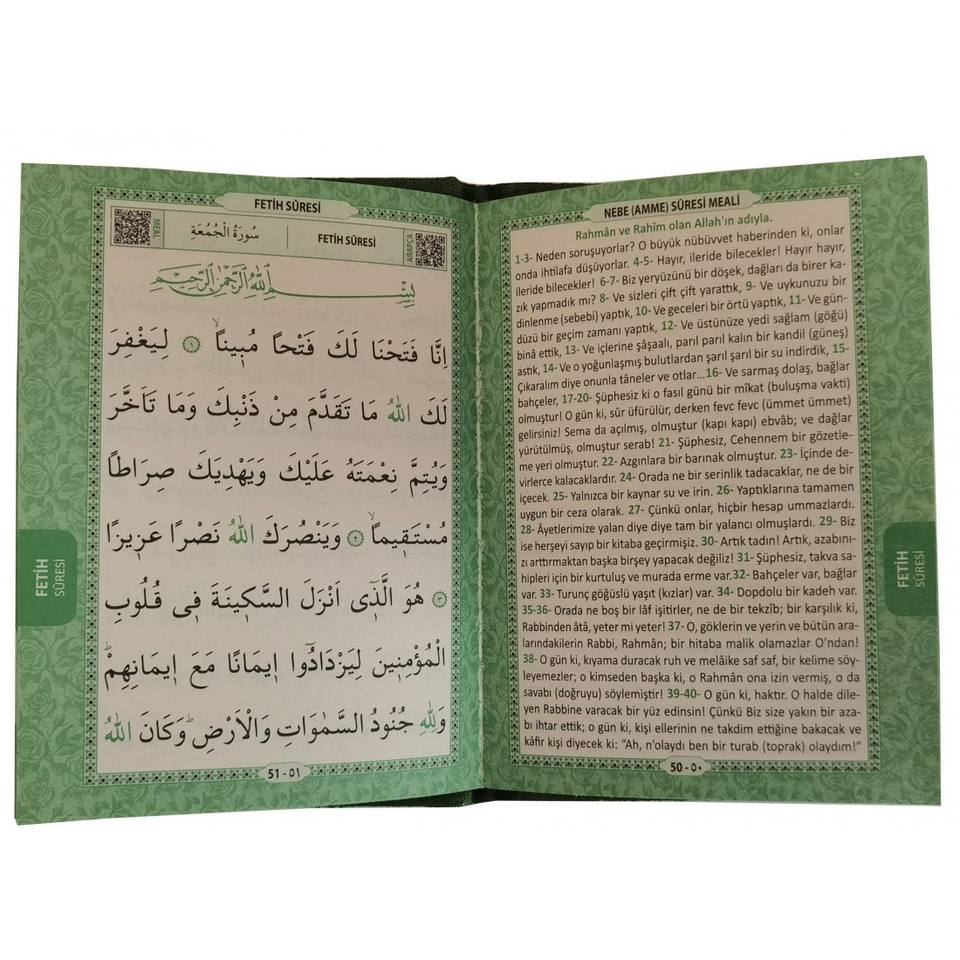 NEBE (AMME) SÛRESİ MEALİ
Rahmân ve Rahîm olan Allah'ın adıyla.
1-3- Neden soruşuyorlar? O büyük nübüvvet haberinden ki, onlar
onda ihtilafa düşüyorlar. 4-5- Hayır, ileride bilecekler! Hayır hayır,
ileride bilecekler! 6-7- Biz yeryüzünü bir döşek, dağları da birer ka-
zık yapmadık mı? 8- Ve sizleri çift çift yarattık, 9- Ve uykunuzu bir
dinlenme (sebebi) yaptık, 10- Ve geceleri bir örtü yaptık, 11- Ve gün-
düzü bir geçim zamanı yaptık, 12- Ve üstünüze yedi sağlam (göğü)
binâ ettik, 13- Ve içlerine şâşaalı, parıl parıl kalın bir kandil (güneş)
astık, 14- Ve o yoğunlaşmış bulutlardan şarıl şarıl bir su indirdik, 15-
Çıkaralım diye onunla tâneler ve otlar...16- Ve sarmaş dolaş, bağlar
bahçeler, 17-20- Şüphesiz ki o fasıl günü bir mîkat (buluşma vakti)
olmuştur! O gün ki, sûr üfürülür, derken fevc fevc (ümmet ümmet)
gelirsiniz! Sema da açılmış, olmuştur (kapı kapı) ebvâb; ve dağlar
yürütülmüş, olmuştur serab! 21- Şüphesiz, Cehennem bir gözetle-
me yeri olmuştur. 22- Azgınlara bir barınak olmuştur. 23- İçinde de-
virlerce kalacaklardır. 24- Orada ne bir serinlik tadacaklar, ne de bir
içecek. 25- Yalnızca bir kaynar su ve irin. 26- Yaptıklarına tamamen
uygun bir ceza olarak. 27- Çünkü onlar, hiçbir hesap ummazlardı.
28- Âyetlerimize yalan diye diye tam bir yalancı olmuşlardı. 29- Biz
ise herşeyi sayıp bir kitaba geçirmişiz. 30- Artık tadın! Artık, azabını-
zı arttırmaktan başka birşey yapacak değiliz! 31- Şüphesiz, takva sa-
hipleri için bir kurtuluş ve murada erme var. 32- Bahçeler var, bağlar
var. 33- Turunç göğüslü yaşıt (kızlar) var. 34- Dopdolu bir kadeh var.
35-36- Orada ne boş bir lâf işitirler, ne de bir tekzîb; bir karşılık ki,
Rabbinden âtâ, yeter mi yeter! 37- O, göklerin ve yerin ve bütün ara-
larındakilerin Rabbi, Rahmân; bir hitaba malik olamazlar O'ndan!
38- O gün ki, kıyama duracak ruh ve melâike saf saf, bir kelime söy-
leyemezler; o kimseden başka ki, o Rahmân ona izin vermiş, o da
savabı (doğruyu) söylemiştir! 39-40- O gün ki, haktır. O halde dile-
yen Rabbine varacak bir yüz edinsin! Çünkü Biz size yakın bir aza-
bı ihtar ettik; o gün ki, kişi ellerinin ne takdim ettiğine bakacak ve
kâfir kişi diyecek ki: "Ah, n'olaydı ben bir turab (toprak) olaydım!"
50 - ٥٠
FETİH
SÛRESİ
FETİH SÛRESİ
MEAL
سُورَةُ الْجُمُعَةِ
FETİH SÛRESİ
ARAPÇA
بِسْمِ اللّٰهِ الرَّحْمٰنِ الرَّحِيمِ
اِنَّا فَتَحْنَا لَكَ فَتْحًا مُبٖينًاۙ ﴿١﴾ لِيَغْفِرَ
لَكَ اللّٰهُ مَا تَقَدَّمَ مِنْ ذَنْبِكَ وَمَا تَاَخَّرَ
وَيُتِمَّ نِعْمَتَهُ عَلَيْكَ وَيَهْدِيَكَ صِرَاطًا
مُسْتَقٖيمًاۙ ﴿٢﴾ وَيَنْصُرَكَ اللّٰهُ نَصْرًا عَزٖيزًا
﴿٣﴾ هُوَ الَّذٖٓى اَنْزَلَ السَّكٖينَةَ فٖى قُلُوبِ
الْمُؤْمِنٖينَ لِيَزْدَادُٓوا اٖيمَانًا مَعَ اٖيمَانِهِمْۜ
وَلِلّٰهِ جُنُودُ السَّمٰوَاتِ وَالْاَرْضِۜ وَكَانَ اللّٰهُ
51 - ٥١
FETİH
SÛRESİ